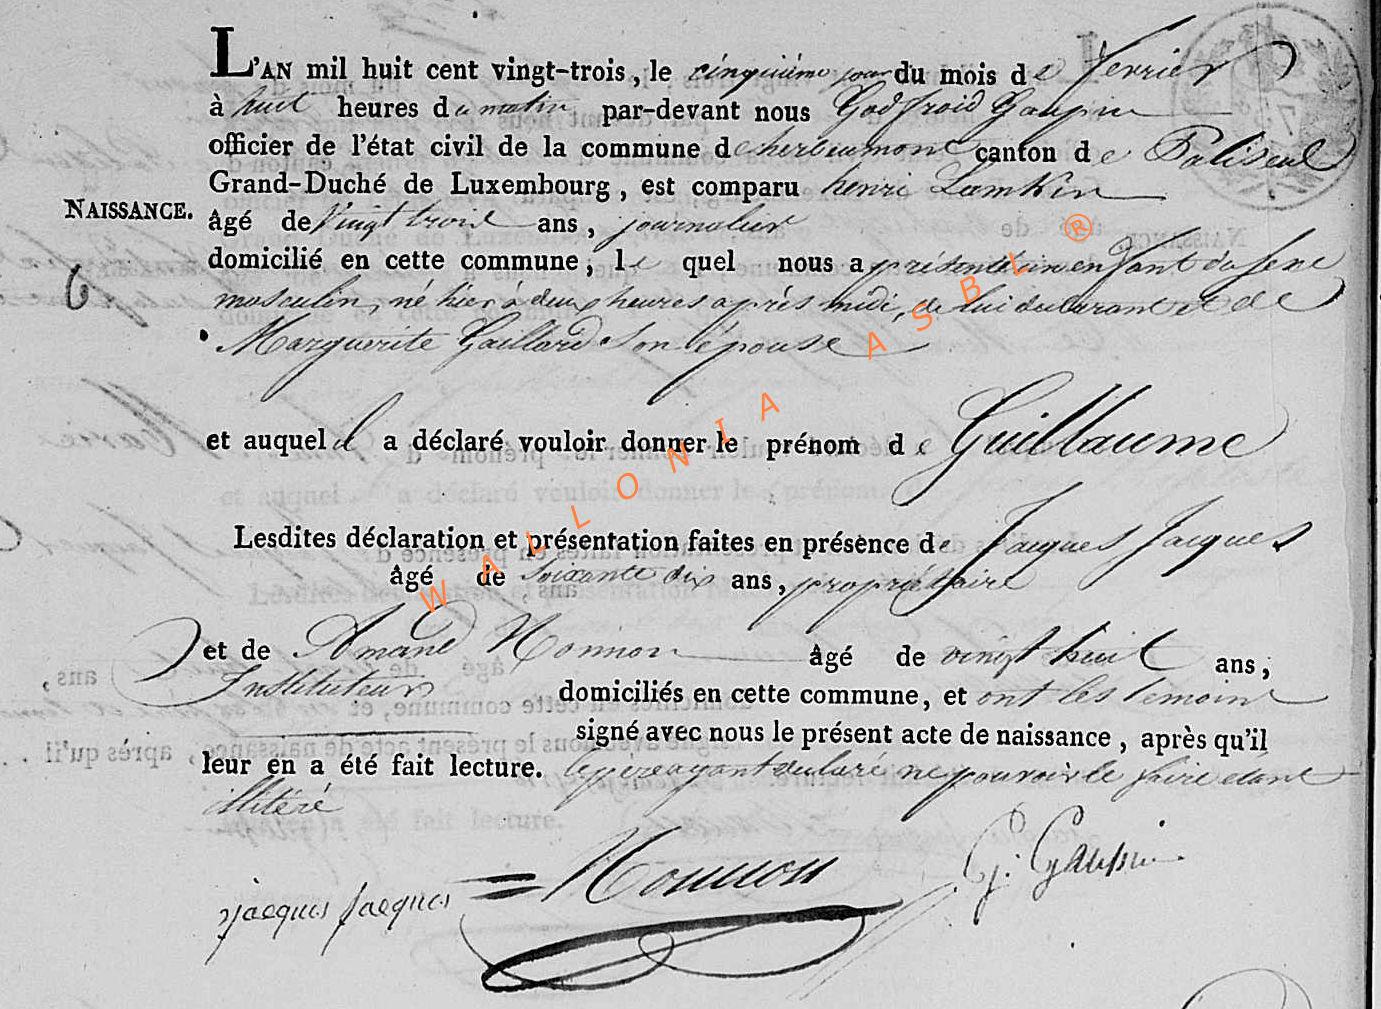 L'AN mil huit cent vingt-trois, le cinquième jour du mois de fevrier
à huit heures du matin par-devant nous Godfroid Gaupin
officier de l'état civil de la commune de herbeumont canton de Paliseul
Grand-Duché de Luxembourg, est comparu henri Lamkin
NAISSANCE. âgé de Vingt trois ans, journalier
domicilié en cette commune, le quel nous a présenté un enfant du sexe
6 masculin, né hier à deux heures après midi, de lui déclarant et de
Marguerite Gaillard son épouse
et auquel il a déclaré vouloir donner le prénom de Guillaume
Lesdites déclaration et présentation faites en présence de Jacques Jacques
âgé de soixante dix ans, propriétaire
et de Amand Nonnon âgé de vingt huit ans,
Instituteur domiciliés en cette commune, et ont les temoins
signé avec nous le présent acte de naissance, après qu'il
leur en a été fait lecture. le père ayant déclaré ne pouvoir le faire étant
illitéré
jacques jacques Nonnon G. Gaupin
WALLONIA ASBL ®